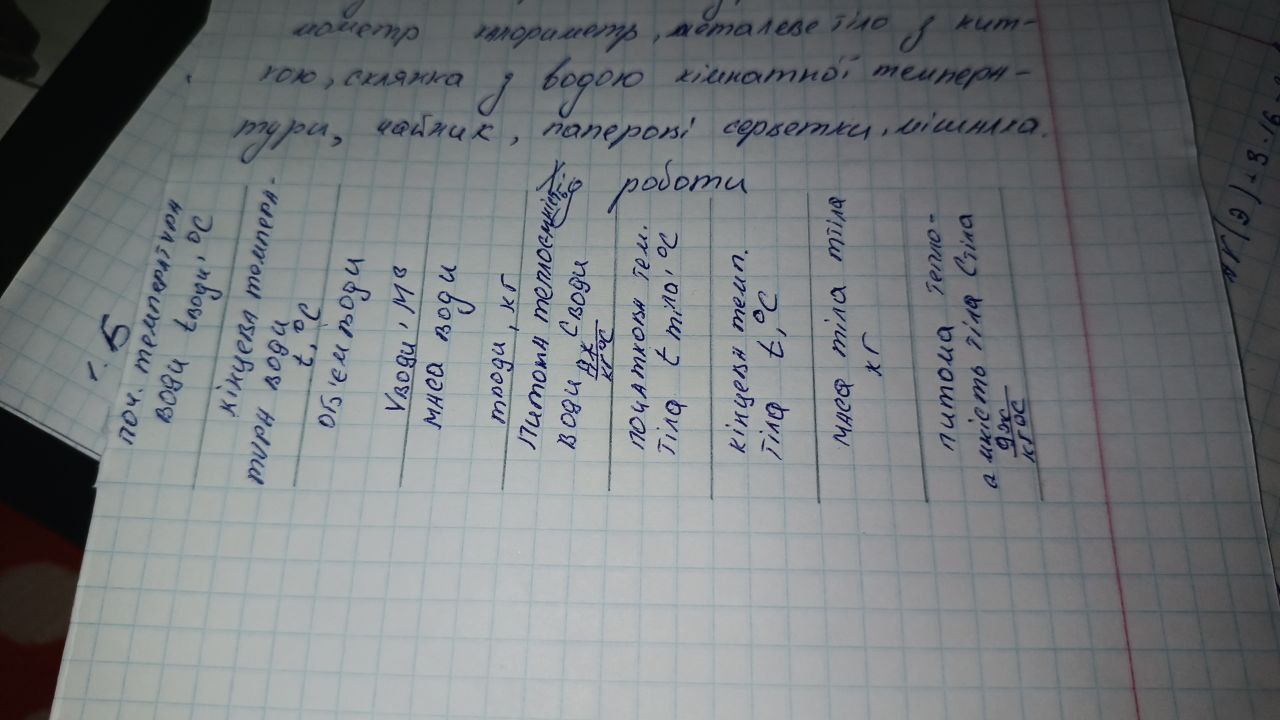 мометр калориметр, металеве тіло з нит-
кою, склянка з водою кімнатної темпера-
тури, чайник, паперові серветки, мішалка.
Хід роботи
поч. температура
води tводи, °C
кінцева темпера-
тура води
t, °C
об'єм води
Vводи, м³
маса води
mводи, кг
Питома теплоємність
води Cводи
Дж
кг°C
початкова тем.
тіла t тіла, °C
кінцева темп.
тіла t, °C
маса тіла mтіла
кг
питома тепло-
ємкість тіла Cтіла
Дж
кг°C